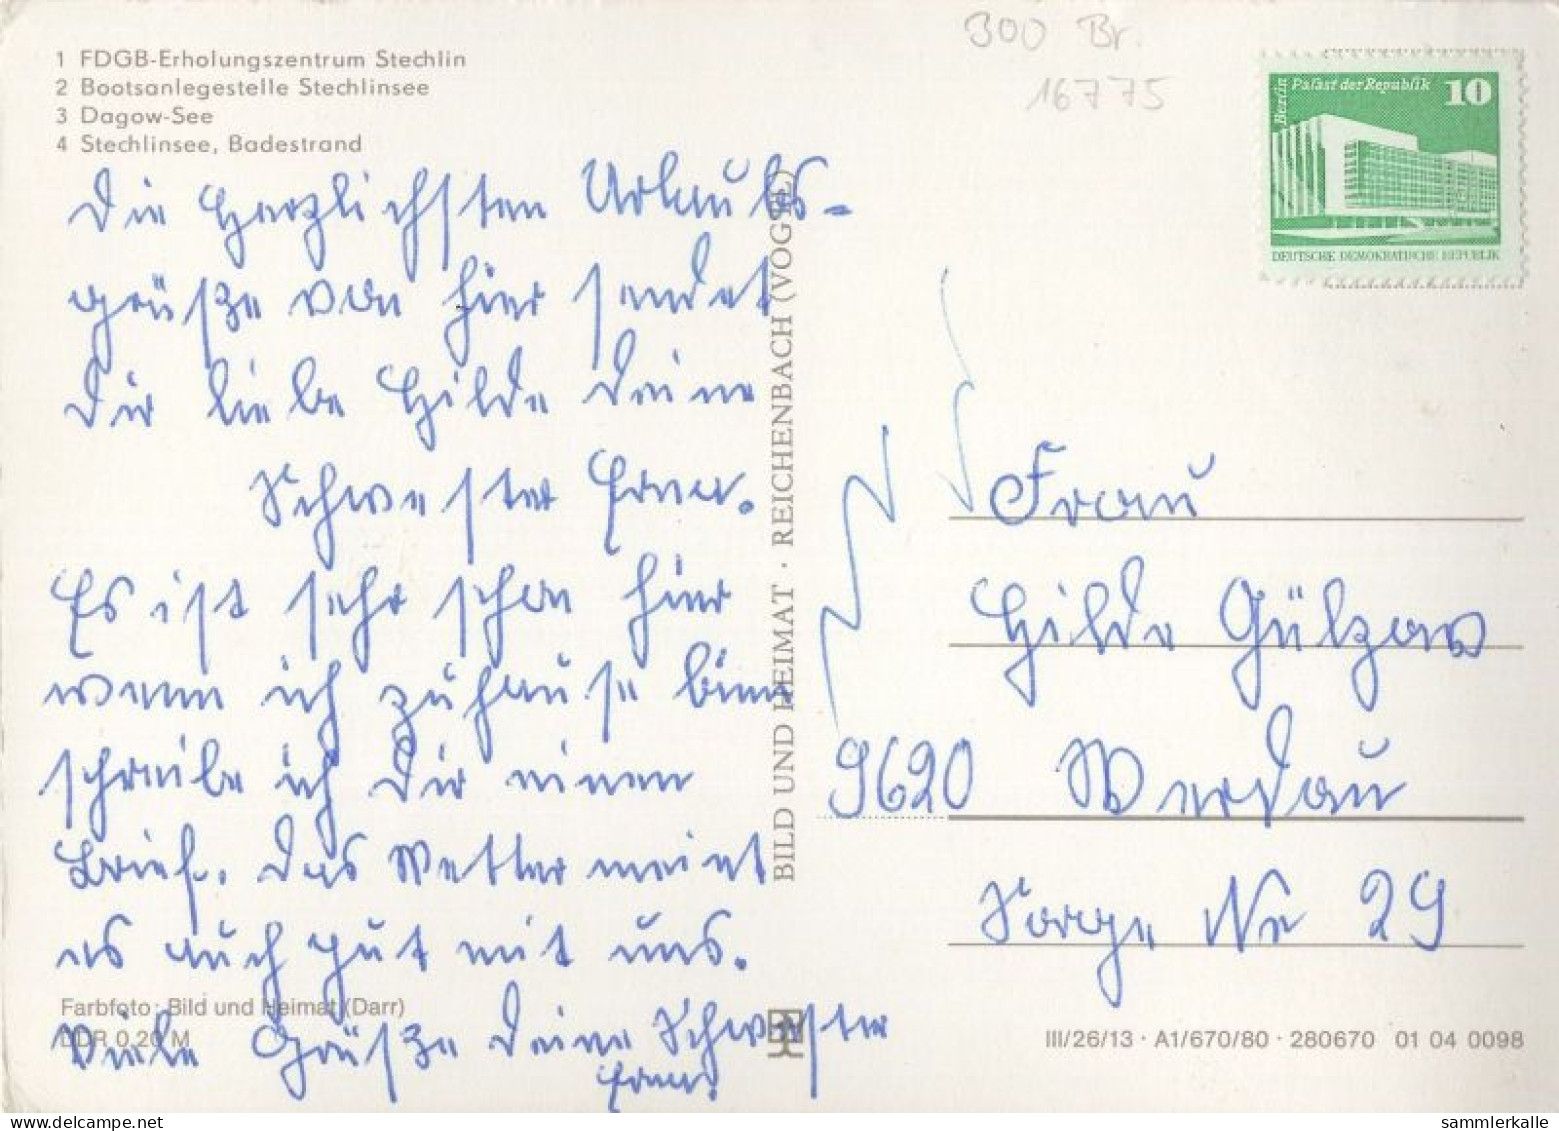 300 Br.
16775
1 FDGB-Erholungszentrum Stechlin
2 Bootsanlegestelle Stechlinsee
3 Dagow-See
4 Stechlinsee, Badestrand
Berlin
Palast der Republik 10
DEUTSCHE DEMOKRATISCHE REPUBLIK
Die herzlichsten Urlaubs-
grüße von hier sendet
Dir liebe Hilde Deine
Schwester Erna.
Es ist sehr schön hier
wenn ich zuhause binn
schreibe ich Dir einen
Brief. Das Wetter meint
es auch gut mit uns.
Viele Grüße Deine Schwester
Erna.
BILD UND HEIMAT · REICHENBACH (VOGTL)
Frau
Hilde Gülzow
9620 Werdau
Sorge Nr 29
Farbfoto: Bild und Heimat (Darr)
DDR 0,20 M
III/26/13 · A1/670/80 · 280670 01 04 0098
sammlerkalle